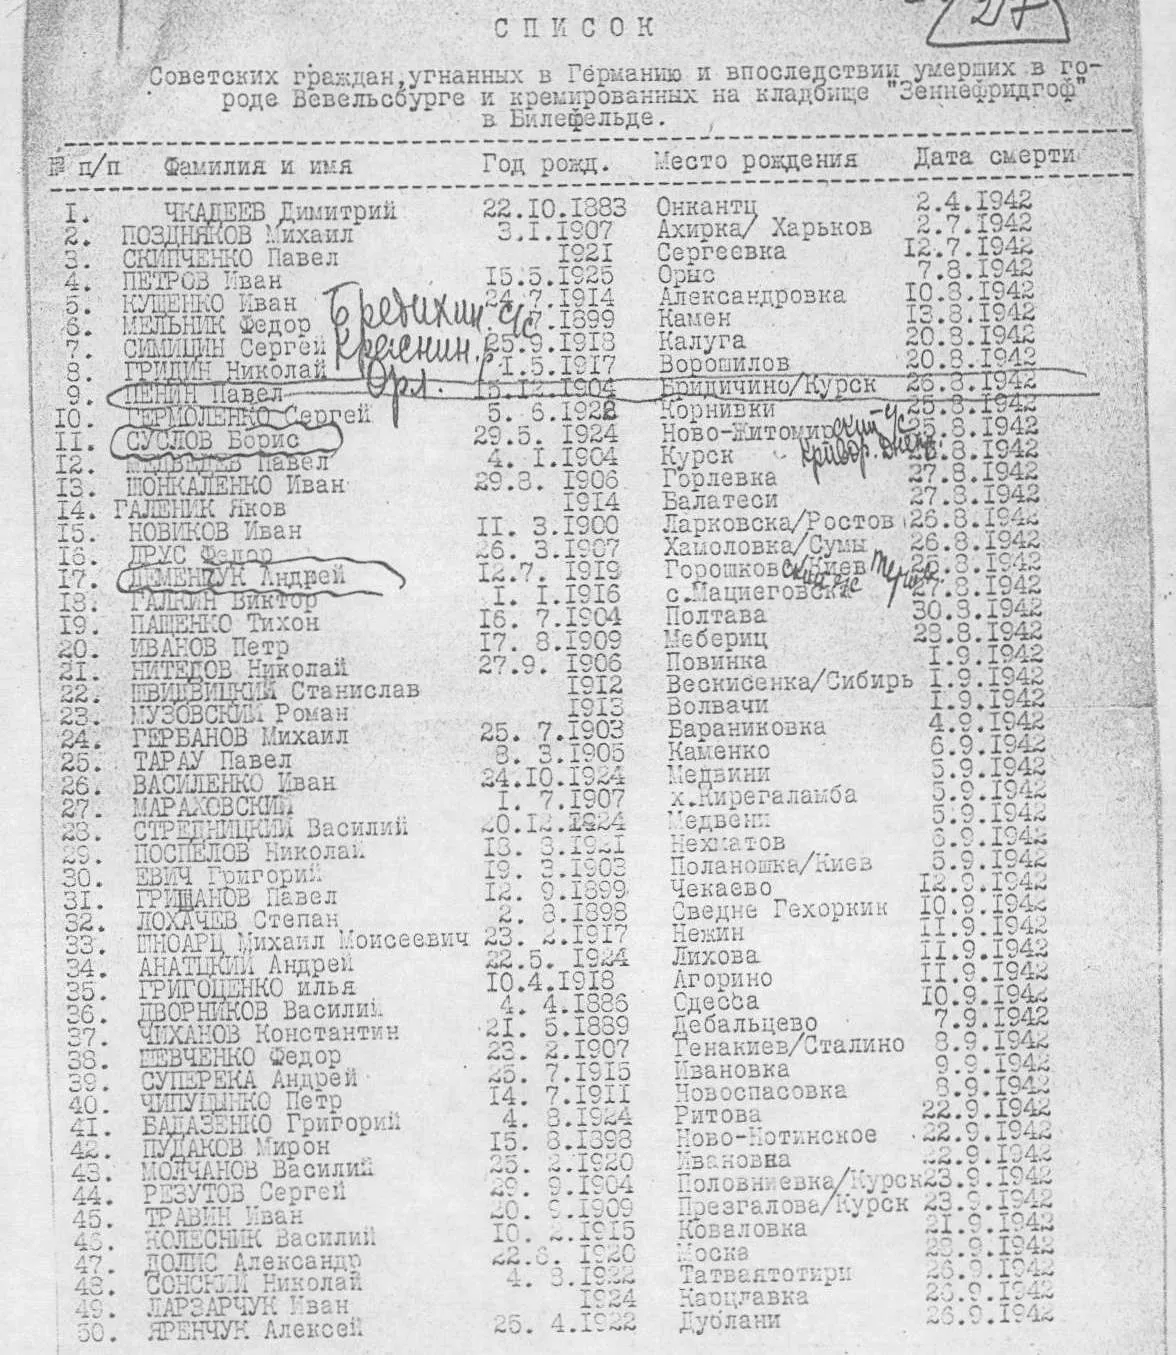 27
СПИСОК
Советских граждан,угнанных в Германию и впоследствии умерших в го-
роде Вевельсбурге и кремированных на кладбище "Зеннефридгоф"
в Билефельде.
№ п/п Фамилия и имя Год рожд. Место рождения Дата смерти
1. ЧКАДЕЕВ Димитрий 22.10.1883 Онкантц 2.4.1942
2. ПОЗДНЯКОВ Михаил 3.1.1907 Ахирка/ Харьков 2.7.1942
3. СКИПЧЕНКО Павел 1921 Сергеевка 12.7.1942
4. ПЕТРОВ Иван 15.5.1925 Орыс 7.8.1942
5. КУЩЕНКО Иван 24.7.1914 Александровка 10.8.1942
Бредихин. с/с
6. МЕЛЬНИК Федор 7.1899 Камен 13.8.1942
7. СИМИЦИН Сергей 25.9.1918 Калуга 20.8.1942
Краснин. р
8. ГРИДИН Николай 1.5.1917 Ворошилов 20.8.1942
Орл.
9. ПЕНИН Павел 15.12.1904 Бридичино/Курск 26.8.1942
10. ГЕРМОЛЕНКО Сергей 5. 6.1922 Корнивки 25.8.1942
11. СУСЛОВ Борис 29.5. 1924 Ново-Житомирский с/с 25.8.1942
12. МЕДВЕДЕВ Павел 4. 1.1904 Курск Кривор. Днепр 8.1942
13. ШОНКАЛЕНКО Иван 29.8. 1906 Горлевка 27.8.1942
14. ГАЛЕНИК Яков 1914 Балатеси 27.8.1942
15. НОВИКОВ Иван 11. 3.1900 Ларковска/Ростов 26.8.1942
16. ДРУС Федор 26. 3.1907 Хамоловка/Сумы 26.8.1942
17. ДЕМЕНЧУК Андрей 12.7. 1919 Горошковский с/с Киев 8.1942
18. ГАЛКИН Виктор 1. 1.1916 с.Мациеговски 27.8.1942
19. ПАШЕНКО Тихон 16. 7.1904 Полтава 30.8.1942
20. ИВАНОВ Петр 17. 8.1909 Мебериц 28.8.1942
21. НИТЕДОВ Николай 27.9. 1906 Повинка 1.9.1942
22. ШВИДВИЦКИЙ Станислав 1912 Вескисенка/Сибирь 1.9.1942
23. МУЗОВСКИЙ Роман 1913 Волвачи 1.9.1942
24. ГЕРБАНОВ Михаил 25. 7.1903 Бараниковка 4.9.1942
25. ТАРАУ Павел 8. 3.1905 Каменко 6.9.1942
26. ВАСИЛЕНКО Иван 24.10.1924 Медвини 5.9.1942
27. МАРАХОВСКИЙ 1. 7.1907 х.Кирегаламба 5.9.1942
28. СТРЕДНИЦКИЙ Василий 20.12.1924 Медвени 5.9.1942
29. ПОСПЕЛОВ Николай 18. 8.1921 Нехматов 6.9.1942
30. ЕВИЧ Григорий 19. 3.1903 Поланошка/Киев 5.9.1942
31. ГРИЩАНОВ Павел 12. 9.1899 Чекаево 12.9.1942
32. ЛОХАЧЕВ Степан 2. 8.1898 Сведне Гехоркин 10.9.1942
33. ШНОАРЦ Михаил Моисеевич 23. 2.1917 Нежин 11.9.1942
34. АНАТЦКИЙ Андрей 22.5. 1924 Лихова 11.9.1942
35. ГРИГОЦЕНКО илья 10.4.1918 Агорино 11.9.1942
36. ДВОРНИКОВ Василий 4. 4.1886 Одесса 10.9.1942
37. ЧИХАНОВ Константин 21. 5.1889 Дебальцево 7.9.1942
38. ШЕВЧЕНКО Федор 23. 2.1907 Генакиев/Сталино 8.9.1942
39. СУПЕРЕКА Андрей 25. 7.1915 Ивановка 9.9.1942
40. ЧИПУЦЫНКО Петр 14. 7.1911 Новоспасовка 8.9.1942
41. БАДАЗЕНКО Григорий 4. 8.1924 Ритова 22.9.1942
42. ПУДАКОВ Мирон 15. 8.1898 Ново-Нотинское 22.9.1942
43. МОЛЧАНОВ Василий 25. 2.1920 Ивановна 22.9.1942
44. РЕЗУТОВ Сергей 29. 9.1904 Половниевка/Курск 23.9.1942
45. ТРАВИН Иван 20. 9.1909 Презгалова/Курск 23.9.1942
46. КОЛЕСНИК Василий 10. 2.1915 Коваловка 21.9.1942
47. ДОЛИС Александр 22.6. 1920 Моска 28.9.1942
48. СОНСКИЙ Николай 4. 8.1922 Татваятотири 26.9.1942
49. ЛАРЗАРЧУК Иван 1924 Карцлавка 26.9.1942
50. ЯРЕНЧУК Алексей 25. 4.1922 Дублани 26.9.1942